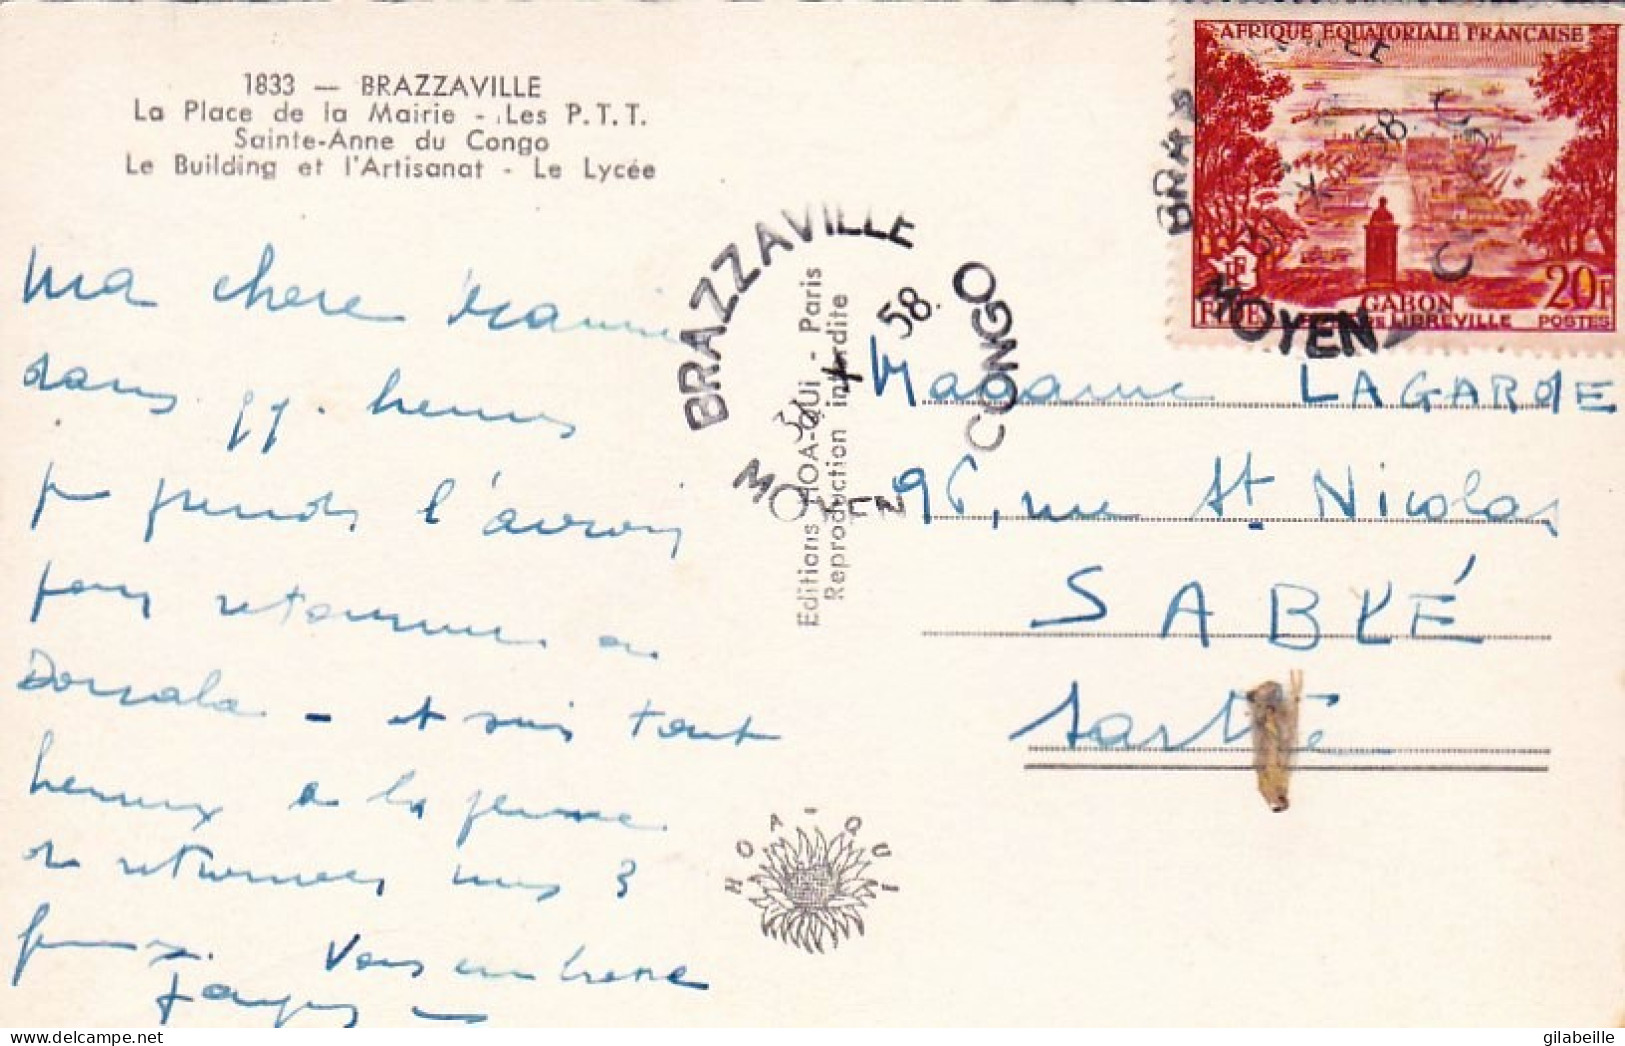 1833 — BRAZZAVILLE
La Place de la Mairie - Les P.T.T.
Sainte-Anne du Congo
Le Building et l'Artisanat - Le Lycée
AFRIQUE EQUATORIALE FRANÇAISE
GABON
LIBREVILLE
20F
POSTES
BRAZZAVILLE
58.
MOYEN CONGO
Editions HOA-QUI - Paris
Reproduction interdite
ma chere
dans qq. heures
je prends l'avion
pour retourner a
Douala - et suis tout
heureux a la pensée
de retrouver mes 3
Vous embrasse
Madame LAGARDE
96, rue St Nicolas
SABLÉ
Sarthe
HOA QUI
gilabeille